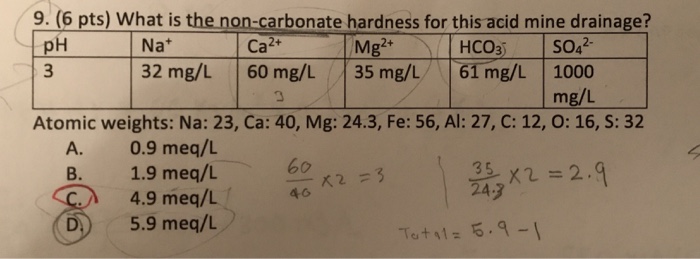 9. (6 pts) What is the non-carbonate hardness for this acid mine drainage?
pH Na⁺ Ca²⁺ Mg²⁺ HCO₃⁻ SO₄²⁻
3 32 mg/L 60 mg/L 35 mg/L 61 mg/L 1000 mg/L
3
Atomic weights: Na: 23, Ca: 40, Mg: 24.3, Fe: 56, Al: 27, C: 12, O: 16, S: 32
A. 0.9 meq/L
B. 1.9 meq/L
C. 4.9 meq/L
D. 5.9 meq/L
60/40 x2 = 3
35/24.3 x2 = 2.9
Total = 5.9 - 1